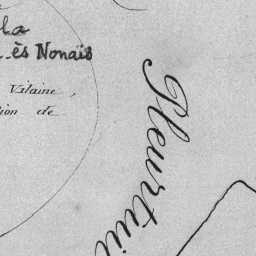 la
ès Nonais
Vilaine,
ion de
Pleurtui